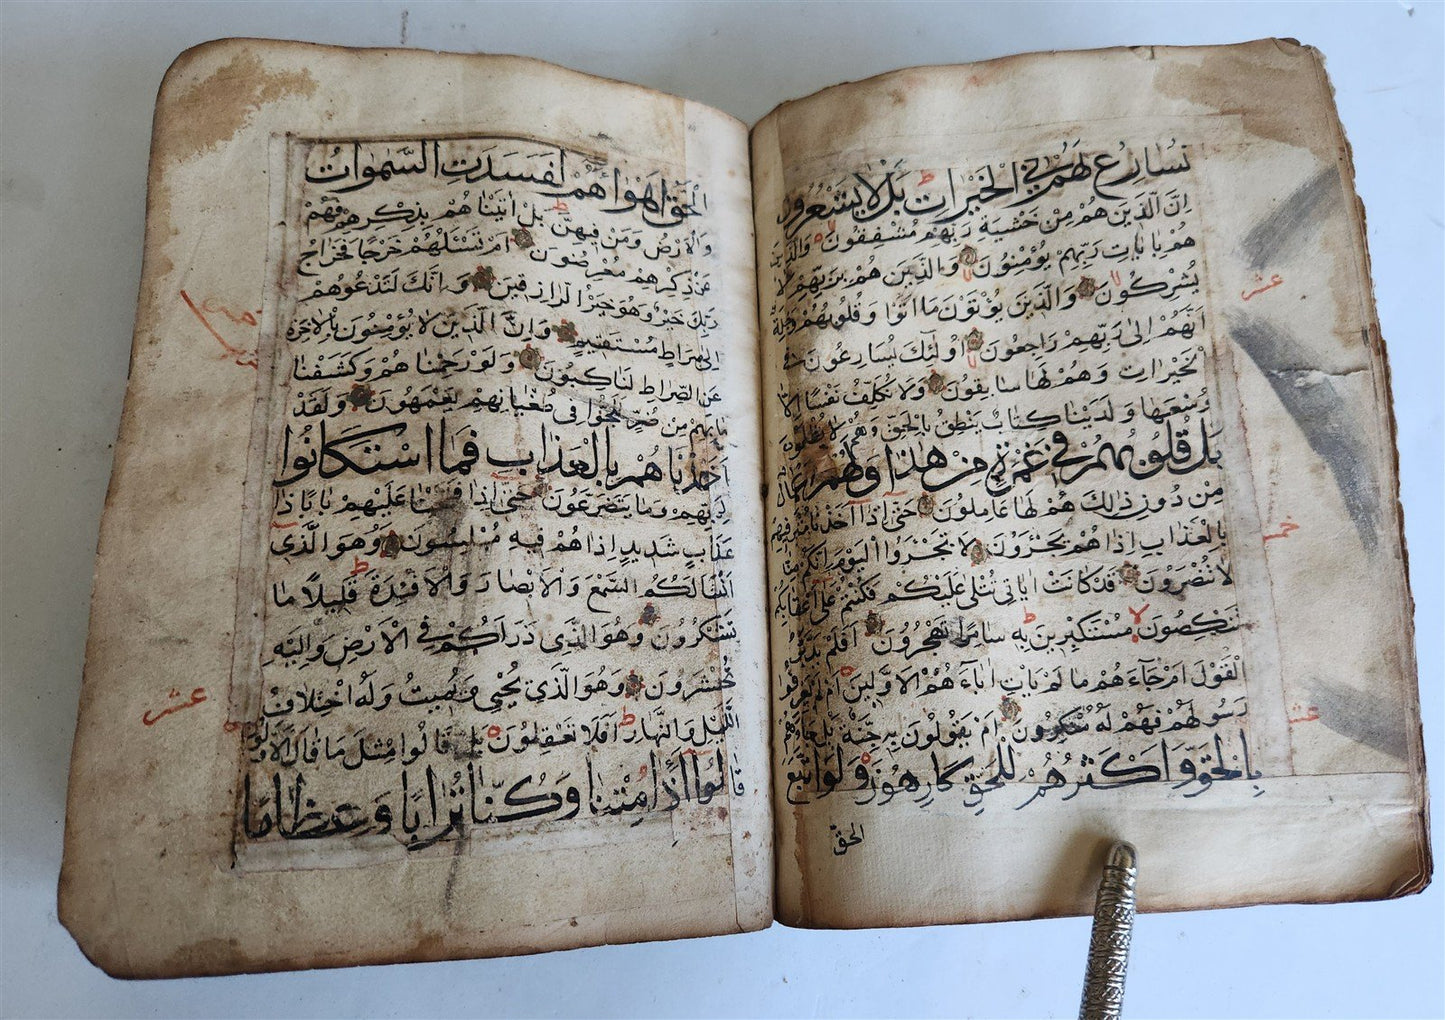 نُسَارِعُ لَهُمْ فِي الْخَيْرَاتِ بَلْ لَا يَشْعُرُونَ
اِنَّ الَّذِينَ هُمْ مِنْ خَشْيَةِ رَبِّهِمْ مُشْفِقُونَ وَالَّذِينَ
هُمْ بِاٰيَاتِ رَبِّهِمْ يُؤْمِنُونَ وَالَّذِينَ هُمْ بِرَبِّهِمْ لَا
يُشْرِكُونَ وَالَّذِينَ يُؤْتُونَ مَا اٰتَوْا وَقُلُوبُهُمْ وَجِلَةٌ
اَنَّهُمْ اِلٰى رَبِّهِمْ رَاجِعُونَ اُولٰئِكَ يُسَارِعُونَ فِي
الْخَيْرَاتِ وَهُمْ لَهَا سَابِقُونَ وَلَا نُكَلِّفُ نَفْسًا اِلَّا
وُسْعَهَا وَلَدَيْنَا كِتَابٌ يَنْطِقُ بِالْحَقِّ وَهُمْ لَا يُظْلَمُونَ
بَلْ قُلُوبُهُمْ فِي غَمْرَةٍ مِنْ هٰذَا وَلَهُمْ اَعْمَالٌ
مِنْ دُونِ ذٰلِكَ هُمْ لَهَا عَامِلُونَ حَتّٰى اِذَا اَخَذْنَا مُتْرَفِيهِمْ
بِالْعَذَابِ اِذَا هُمْ يَجْـَٔرُونَ لَا تَجْـَٔرُوا الْيَوْمَ اِنَّكُمْ مِنَّا
لَا تُنْصَرُونَ قَدْ كَانَتْ اٰيَاتِي تُتْلٰى عَلَيْكُمْ فَكُنْتُمْ عَلٰى اَعْقَابِكُمْ
تَنْكِصُونَ مُسْتَكْبِرِينَ بِهِ سَامِرًا تَهْجُرُونَ اَفَلَمْ يَدَّبَّرُوا
الْقَوْلَ اَمْ جَاءَهُمْ مَا لَمْ يَاْتِ اٰبَاءَهُمُ الْاَوَّلِينَ اَمْ لَمْ يَعْرِفُوا
رَسُولَهُمْ فَهُمْ لَهُ مُنْكِرُونَ اَمْ يَقُولُونَ بِهِ جِنَّةٌ بَلْ جَاءَهُمْ
بِالْحَقِّ وَاَكْثَرُهُمْ لِلْحَقِّ كَارِهُونَ وَلَوِ اتَّبَعَ
الحق
عشر
خمس
عشر
الْحَقُّ اَهْوَاءَهُمْ لَفَسَدَتِ السَّمٰوَاتُ
وَالْاَرْضُ وَمَنْ فِيهِنَّ بَلْ اَتَيْنَاهُمْ بِذِكْرِهِمْ فَهُمْ
عَنْ ذِكْرِهِمْ مُعْرِضُونَ اَمْ تَسْـَٔلُهُمْ خَرْجًا فَخَرَاجُ
رَبِّكَ خَيْرٌ وَهُوَ خَيْرُ الرَّازِقِينَ وَاِنَّكَ لَتَدْعُوهُمْ
اِلٰى صِرَاطٍ مُسْتَقِيمٍ وَاِنَّ الَّذِينَ لَا يُؤْمِنُونَ بِالْاٰخِرَةِ
عَنِ الصِّرَاطِ لَنَاكِبُونَ وَلَوْ رَحِمْنَاهُمْ وَكَشَفْنَا
مَا بِهِمْ مِنْ ضُرٍّ لَلَجُّوا فِي طُغْيَانِهِمْ يَعْمَهُونَ وَلَقَدْ
اَخَذْنَاهُمْ بِالْعَذَابِ فَمَا اسْتَكَانُوا
لِرَبِّهِمْ وَمَا يَتَضَرَّعُونَ حَتّٰى اِذَا فَتَحْنَا عَلَيْهِمْ بَابًا ذَا
عَذَابٍ شَدِيدٍ اِذَا هُمْ فِيهِ مُبْلِسُونَ وَهُوَ الَّذِي
اَنْشَاَ لَكُمُ السَّمْعَ وَالْاَبْصَارَ وَالْاَفْئِدَةَ قَلِيلًا مَا
تَشْكُرُونَ وَهُوَ الَّذِي ذَرَاَكُمْ فِي الْاَرْضِ وَاِلَيْهِ
تُحْشَرُونَ وَهُوَ الَّذِي يُحْيِي وَيُمِيتُ وَلَهُ اخْتِلَافُ
الَّيْلِ وَالنَّهَارِ اَفَلَا تَعْقِلُونَ بَلْ قَالُوا مِثْلَ مَا قَالَ الْاَوَّلُونَ
قَالُوا اَئِذَا مِتْنَا وَكُنَّا تُرَابًا وَعِظَامًا
عشر